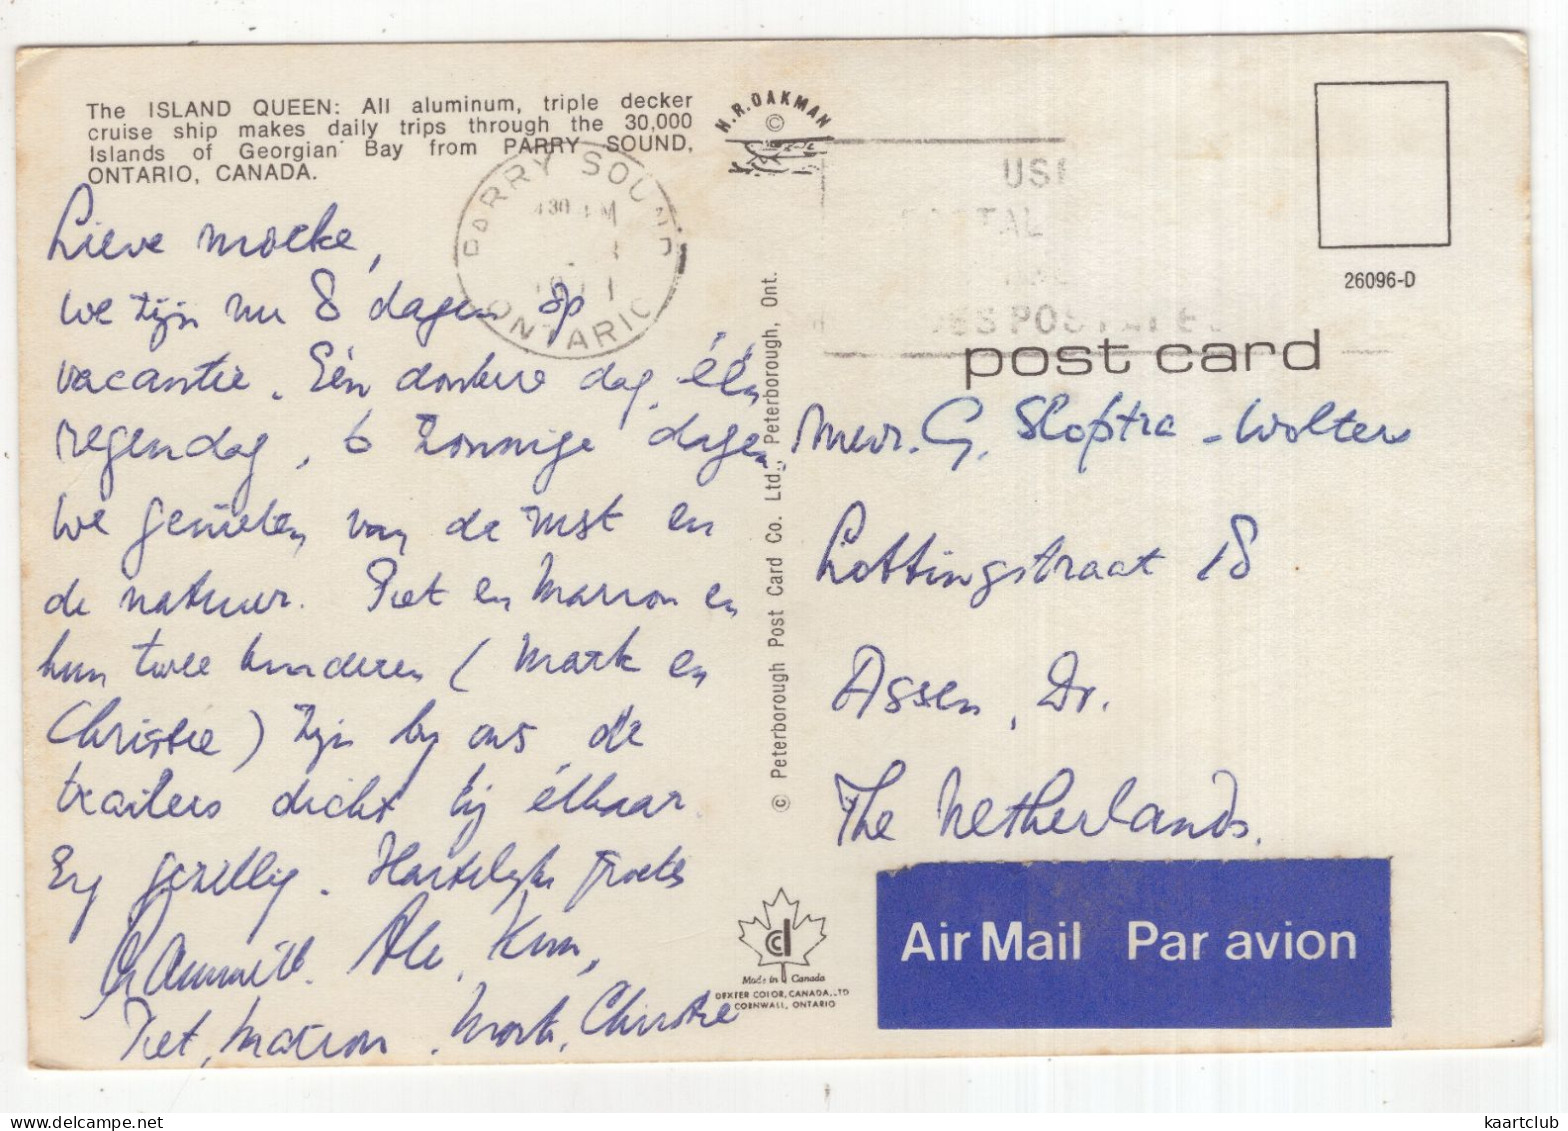 The ISLAND QUEEN: All aluminum, triple decker
cruise ship makes daily trips through the 30,000
Islands of Georgian Bay from PARRY SOUND,
ONTARIO, CANADA.
H.R. OAKMAN
©
PARRY SOUND
ONTARIO
26096-D
post card
Lieve moeke,
we zijn nu 8 dagen op
vacantie. Eén donkere dag, één
regendag, 6 zonnige dagen.
We genieten van de rust en
de natuur. Piet en Marion en
hun twee kinderen (Mark en
Christie) zijn bij ons, de
trailers dicht bij elkaar.
Erg gezellig. Hartelijke groeten
Ale, Kim,
Piet, Marion, Mark, Christie
© Peterborough Post Card Co. Ltd., Peterborough, Ont.
Mevr. G. Slofstra-Wolters
Lottingstraat 18
Assen, Dr.
The Netherlands.
Made in Canada
DEXTER COLOR, CANADA, LTD
CORNWALL, ONTARIO
Air Mail Par avion
kaartclub